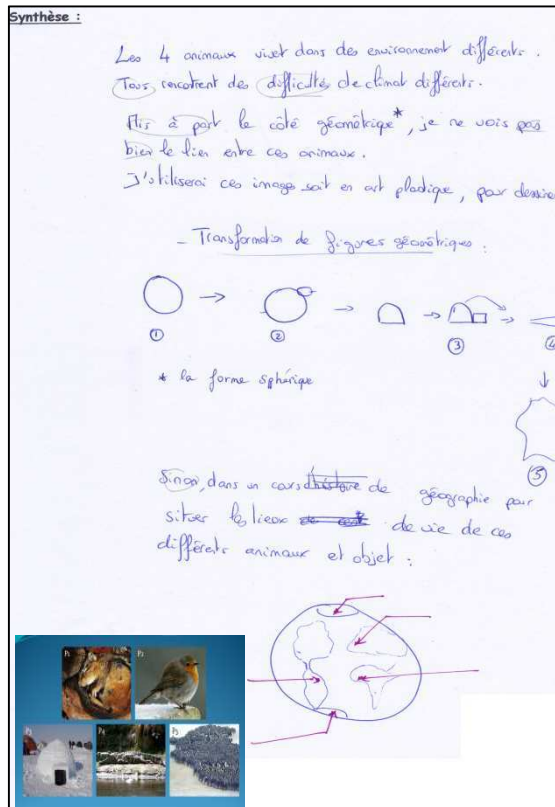 Synthèse :
Les 4 animaux vivet dans des environnement différents.
Tous rencotrent des difficultés de climat différents.
Mis à part le côté géométrique*, je ne vois pas
bien le lien entre ces animaux.
J'utiliserai ces images soit en art plastique, pour dessiner
- Transformation de figures géométriques :
① ② ③ ④
* la forme sphérique
⑤
Sinon, dans un cours de géographie pour
situer les lieux de vie de ces
différents animaux et objet :
P1 P2
P3 P4 P5